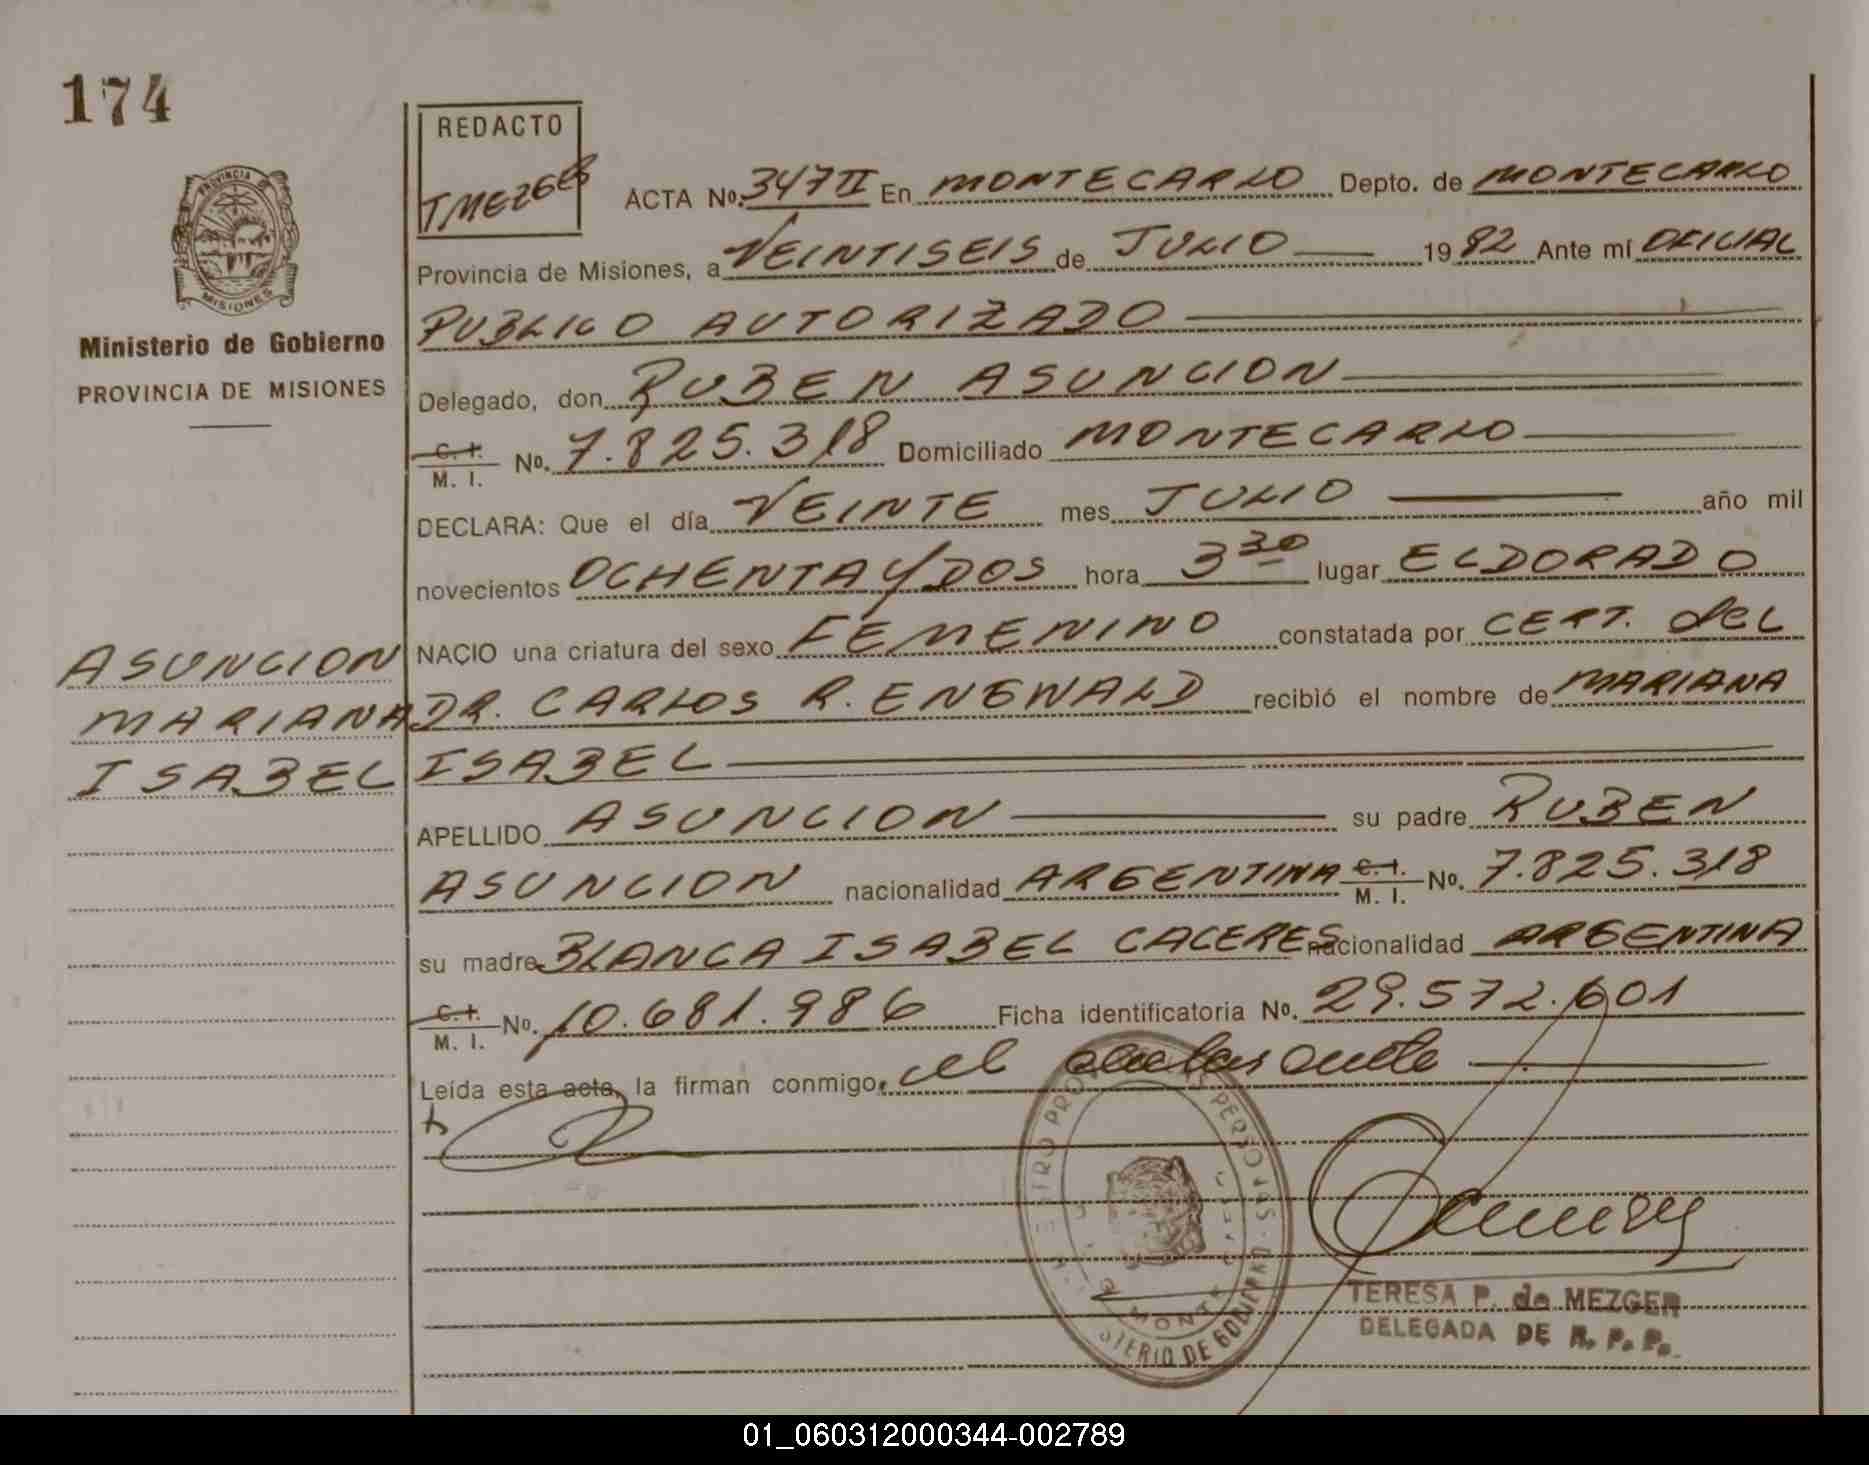 174
REDACTO
TMEZGER
PROVINCIA
MISIONES
Ministerio de Gobierno
PROVINCIA DE MISIONES
ACTA No. 347 II En MONTECARLO Depto. de MONTECARLO
Provincia de Misiones, a VEINTISEIS de JULIO 1982 Ante mí OFICIAL
PUBLICO AUTORIZADO
Delegado, don RUBEN ASUNCION
C. I. M. I. No. 7.825.318 Domiciliado MONTECARLO
DECLARA: Que el día VEINTE mes JULIO año mil
novecientos OCHENTA Y DOS hora 3 30 lugar ELDORADO
NACIO una criatura del sexo FEMENINO constatada por CERT. del
DR. CARLOS R. ENGWALD recibió el nombre de MARIANA
ISABEL
ASUNCION
MARIANA
ISABEL
APELLIDO ASUNCION su padre RUBEN
ASUNCION nacionalidad ARGENTINA C. I. M. I. No. 7.825.318
su madre BLANCA ISABEL CACERES nacionalidad ARGENTINA
C. I. M. I. No. 10.681.986 Ficha identificatoria No. 29.572.601
Leída esta acta, la firman conmigo, el declarante
TERESA P. de MEZGER
DELEGADA DE R. P. P.
01_060312000344-002789